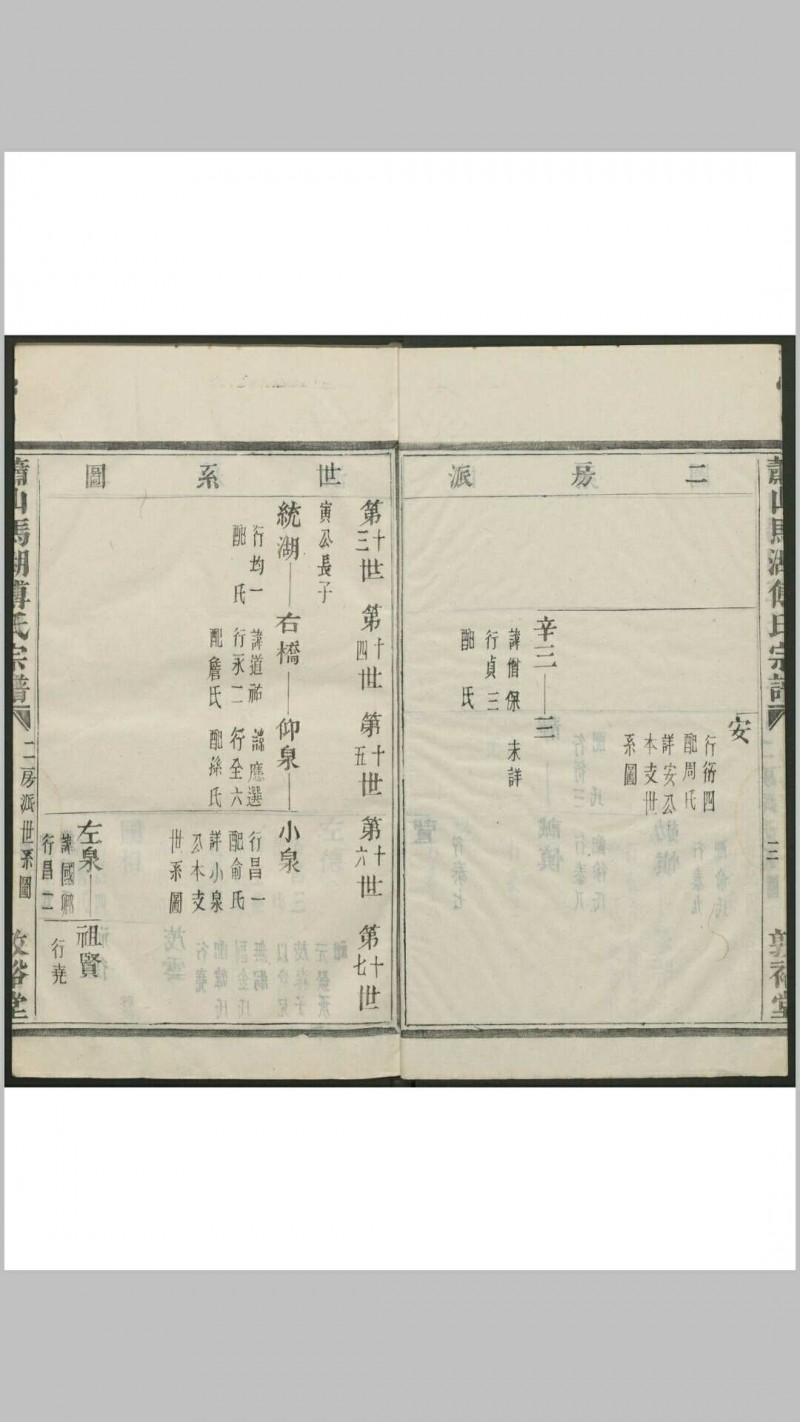 蕭山馬湖傅氏宗譜
三
敦裕堂
二房派
安
行衍四
配周氏
詳安公
本支世
系圖
辛三
三
諱僧保
未詳
行貞三
配 氏
世系圖
第十三世
第十四世
第十五世
第十六世
第十七世
寅公長子
統湖
右橋
仰泉
小泉
行均一
配 氏
諱道祐
行永二
配詹氏
諱應選
行全六
配孫氏
行昌一
配俞氏
詳小泉
公本支
世系圖
左泉
祖賢
諱國卿
行昌二
行堯
蕭山馬湖傅氏宗譜
二房派世系圖
敦裕堂